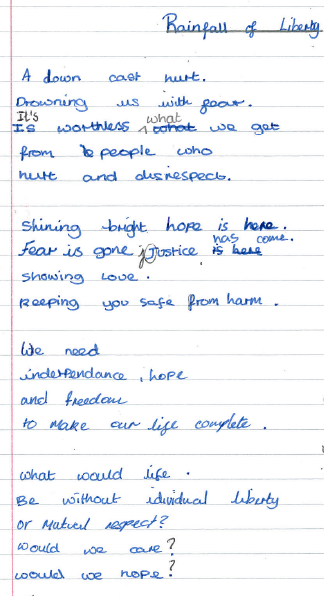 Rainfall of Liberty
A down cast hurt.
Drowning us with fear.
It's worthless what we get
from people who
hurt and disrespect.
Shining bright hope is here.
Fear is gone, Justice has come.
Showing love.
Keeping you safe from harm.
We need
independance, hope
and freedom
to make our life complete.
what would life.
Be without idividual liberty
or Mutual respect?
Would we care?
would we hope?